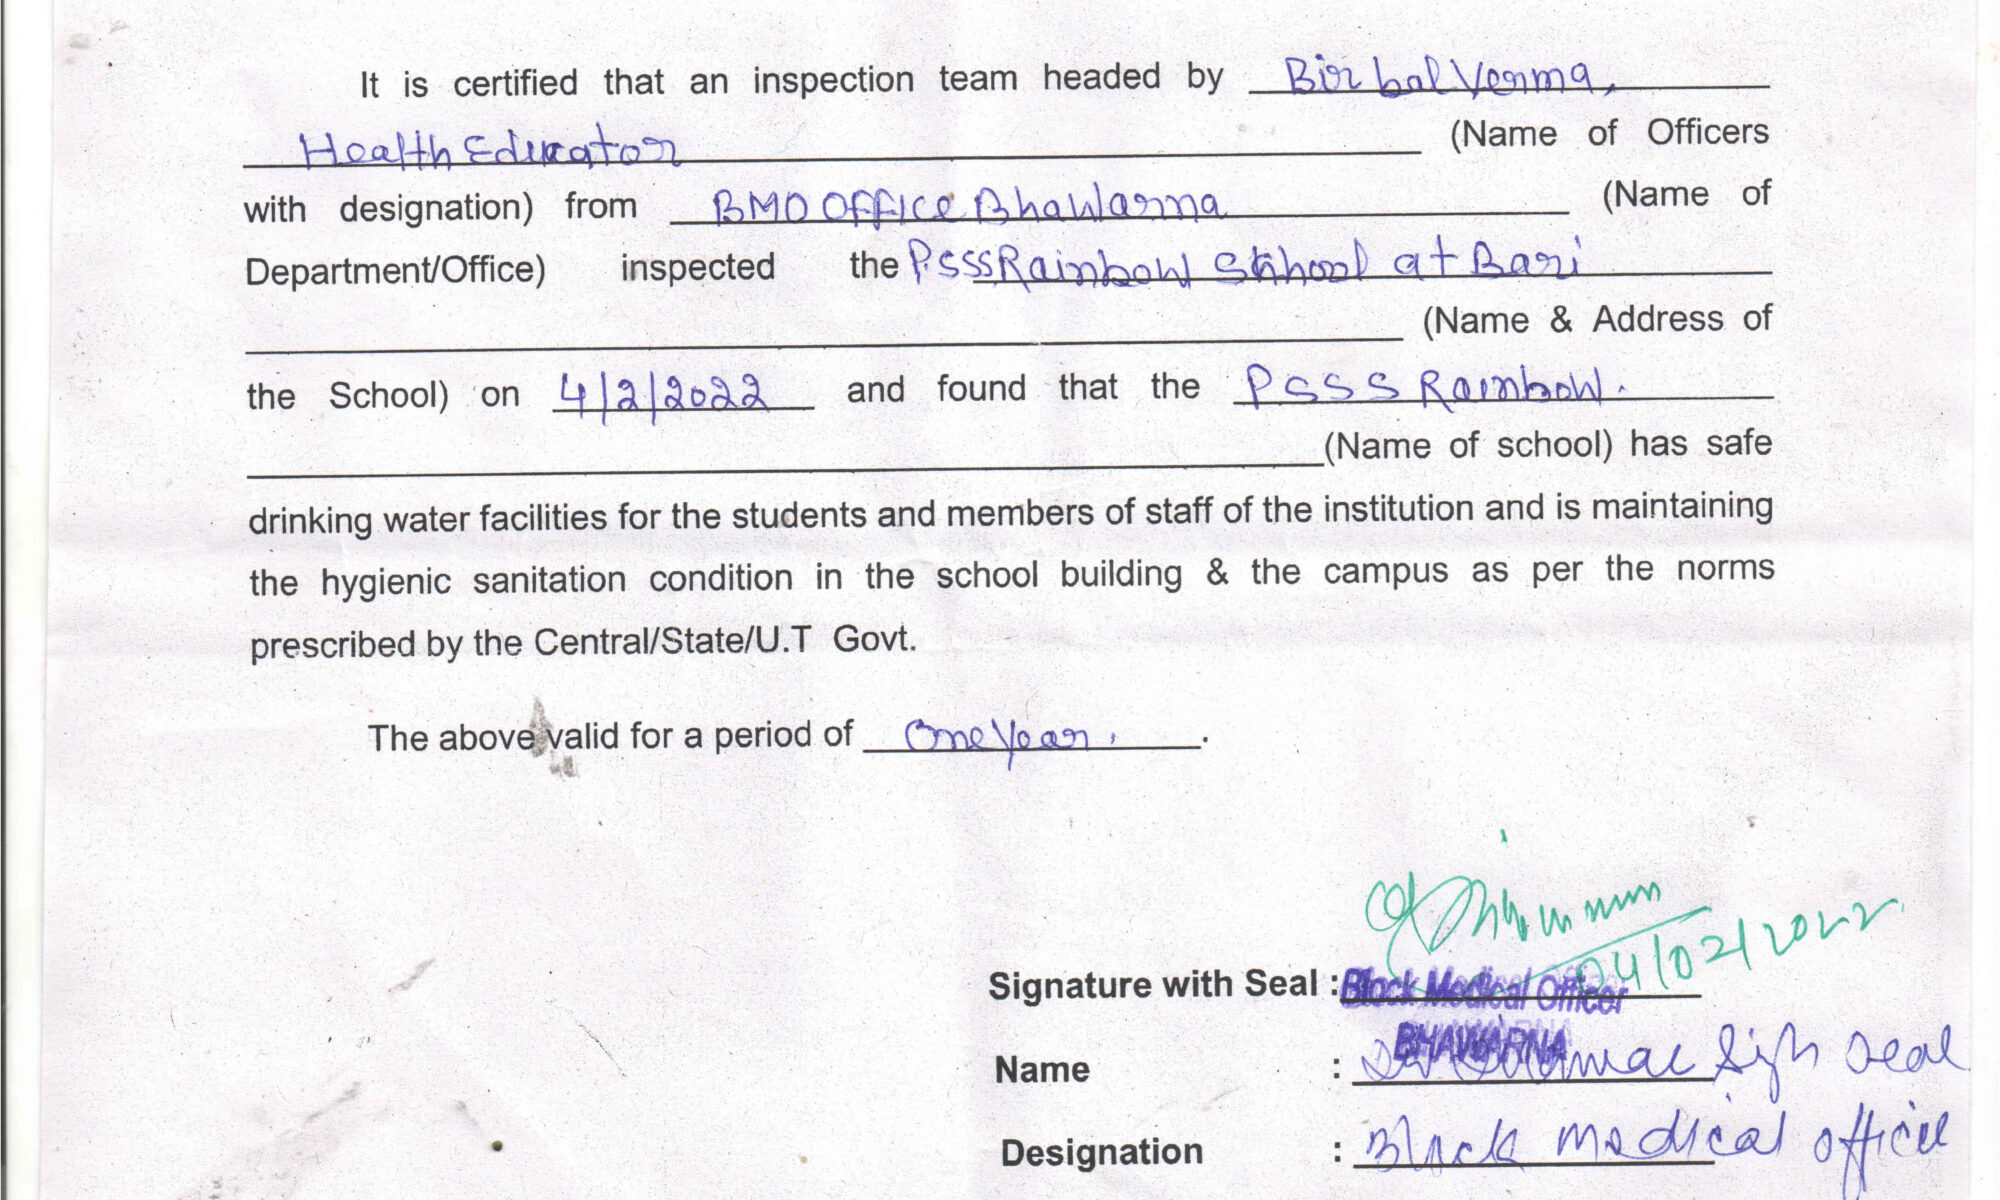 It is certified that an inspection team headed by Birbal Verma,
Health Educator (Name of Officers
with designation) from BMO Office Bhawarna (Name of
Department/Office) inspected the PSSS Rainbow School at Bari
(Name & Address of
the School) on 4/2/2022 and found that the PSSS Rainbow.
(Name of school) has safe
drinking water facilities for the students and members of staff of the institution and is maintaining
the hygienic sanitation condition in the school building & the campus as per the norms
prescribed by the Central/State/U.T Govt.
The above valid for a period of One Year.
04/02/2022
Signature with Seal : Block Medical Officer
BHAWARNA
Name : Dr
Designation : Block Medical Officer